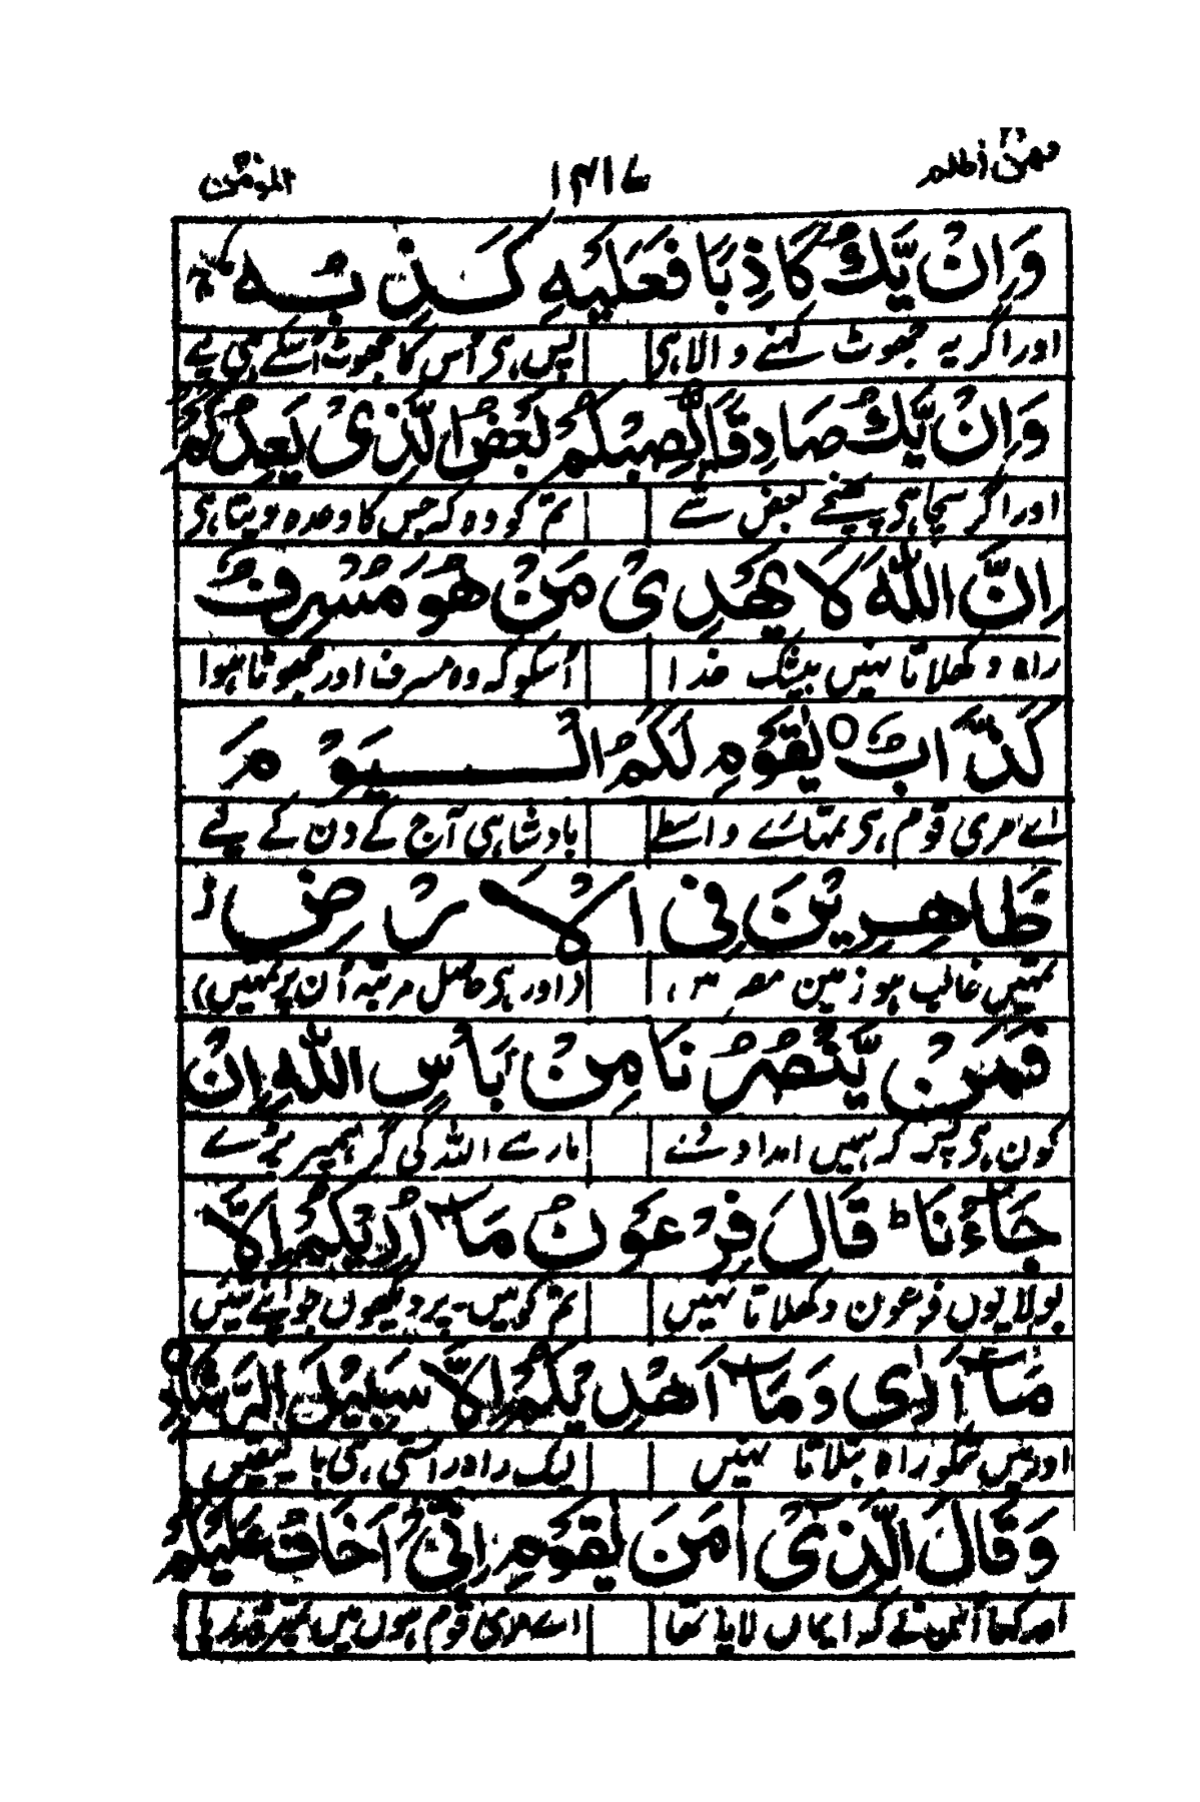 فمن اظلم ۲۴ ۱۴۱۷ المؤمن
وَاِنْ يَّكُ كَاذِبًا فَعَلَيْهِ كَذِبُهٗ ۚ
اور اگر یہ جھوٹ کہنے والا ہی پس ہی اُس کا جھوٹ اُسکے ہی لیے
وَاِنْ يَّكُ صَادِقًا يُّصِبْكُمْ بَعْضُ الَّذِىْ يَعِدُكُمْ
اور اگر سچا ہی پہنچے بعض شے تم کو وہ کہ جس کا وعدہ دیتا ہی
اِنَّ اللّٰهَ لَا يَهْدِىْ مَنْ هُوَ مُسْرِفٌ
راہ دکھلاتا نہیں بیشک خدا اُسکو کہ وہ مسرف اور جھوٹا ہوا
كَذَّابٌ ۝ يٰقَوْمِ لَكُمُ الْمُلْكُ الْيَوْمَ
اے مری قوم ہی تمہارے واسطے بادشاہی آج کے دن کے لیے
ظَاهِرِيْنَ فِى الْاَرْضِ ز
تمہیں غالب ہو زمین مصر ۳، (اور ہی حاصل مرتبہ اُن پر تمہیں)
فَمَنْ يَّنْصُرُنَا مِنْ بَاْسِ اللّٰهِ اِنْ
کون ہی پھر کہ ہمیں امداد شے مارسے اللہ کی گر ہمپر پڑے
جَآءَنَا ط قَالَ فِرْعَوْنُ مَآ اُرِيْكُمْ اِلَّا
بولا یوں فرعون دکھلاتا نہیں تم کو میں۔ پر دیکھوں جو اپنے تئیں
مَآ اَرٰى وَمَآ اَهْدِيْكُمْ اِلَّا سَبِيْلَ الرَّشَادِ ۝
اور میں تمکو راہ بتلاتا نہیں لیک راہ راستی ہی با یقیں
وَقَالَ الَّذِىْٓ اٰمَنَ يٰقَوْمِ اِنِّىْٓ اَخَافُ عَلَيْكُمْ
اور کہا اُسنے کہ ایماں لایا تھا اے مری قوم ہوں میں تمپر